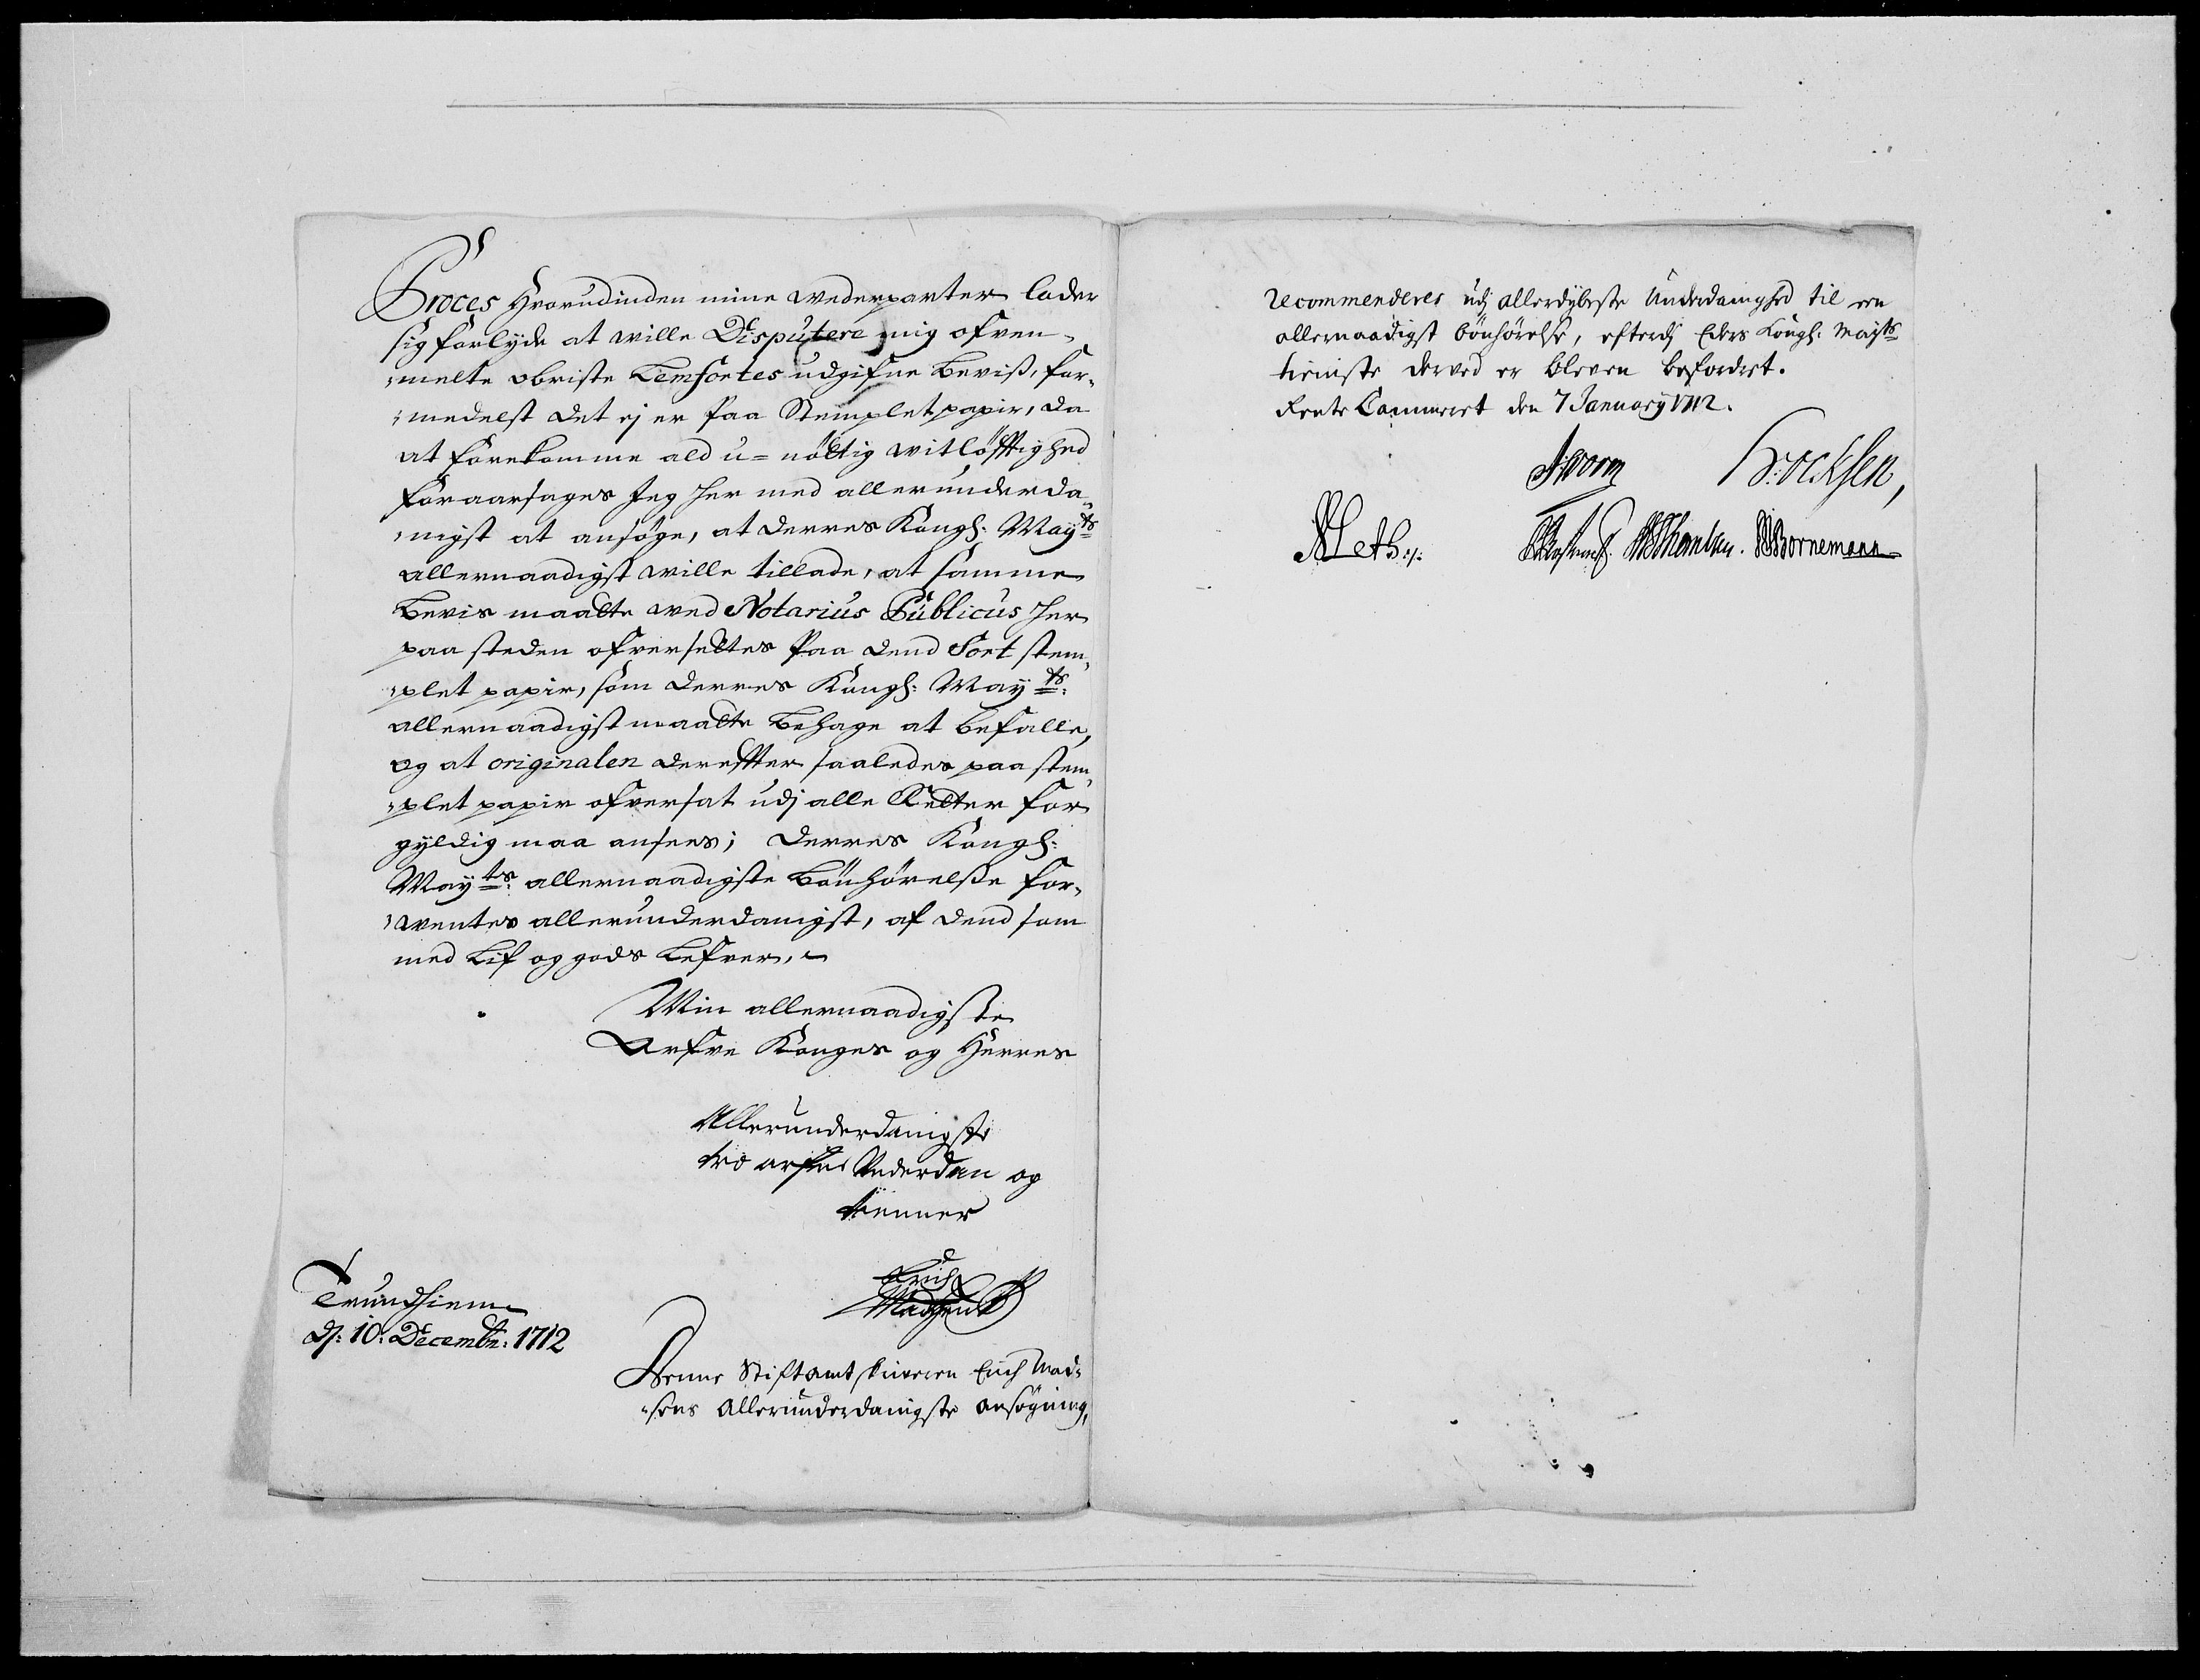 Proces Hvorudinden mine wederparter lader
sig forlyde at wille Disputere mig ofven-
melte obriste Lemfortes udgifne beviß, for-
medelst det ej er paa Stemplet papir, da
at forekomme ald u-nöttig witlöfftighed
foraarsages Jeg her med allerunderda-
nigst at ansöge, at Derres Kongl: Mayts
allernaadigst wille tillade, at samme
Bevis maatte wed Notarius Publicus her
paa steden ofversettes paa dend Sort stem-
plet papir, som Derres Kongl: Mayts:
allernaadigst maatte behage at befalle,
og at originalen dereffter saaledes paa stem-
plet papir ofversat udj alle Retter for
gyldig maa ansees; Derres Kongl:
Mayts: allernaadigste bönhörelße for-
wentes allerunderdanigst, af dend som
med Lif og gods Lefver,
Min allernaadigste
Arfve Konges og Herres
Allerunderdanigste
tro arfve Underdan og
tienner
Erich
Madsen
Trundhiem
d: 10: Decembr: 1712
Denne Stiftamtskriveren Erich Mad-
sens Allerunderdanigste ansögning,
recommenderes udj allerdybeste Underdanighed til en
allernaadigst bönhörelse, efterdj Eders Kongl: Mayts
tieniste derved er bleven befordret.
Rente Cammeret den 7 January 1712.
JWorm Bocksen,
Meth:
Thomsen. Bornemann